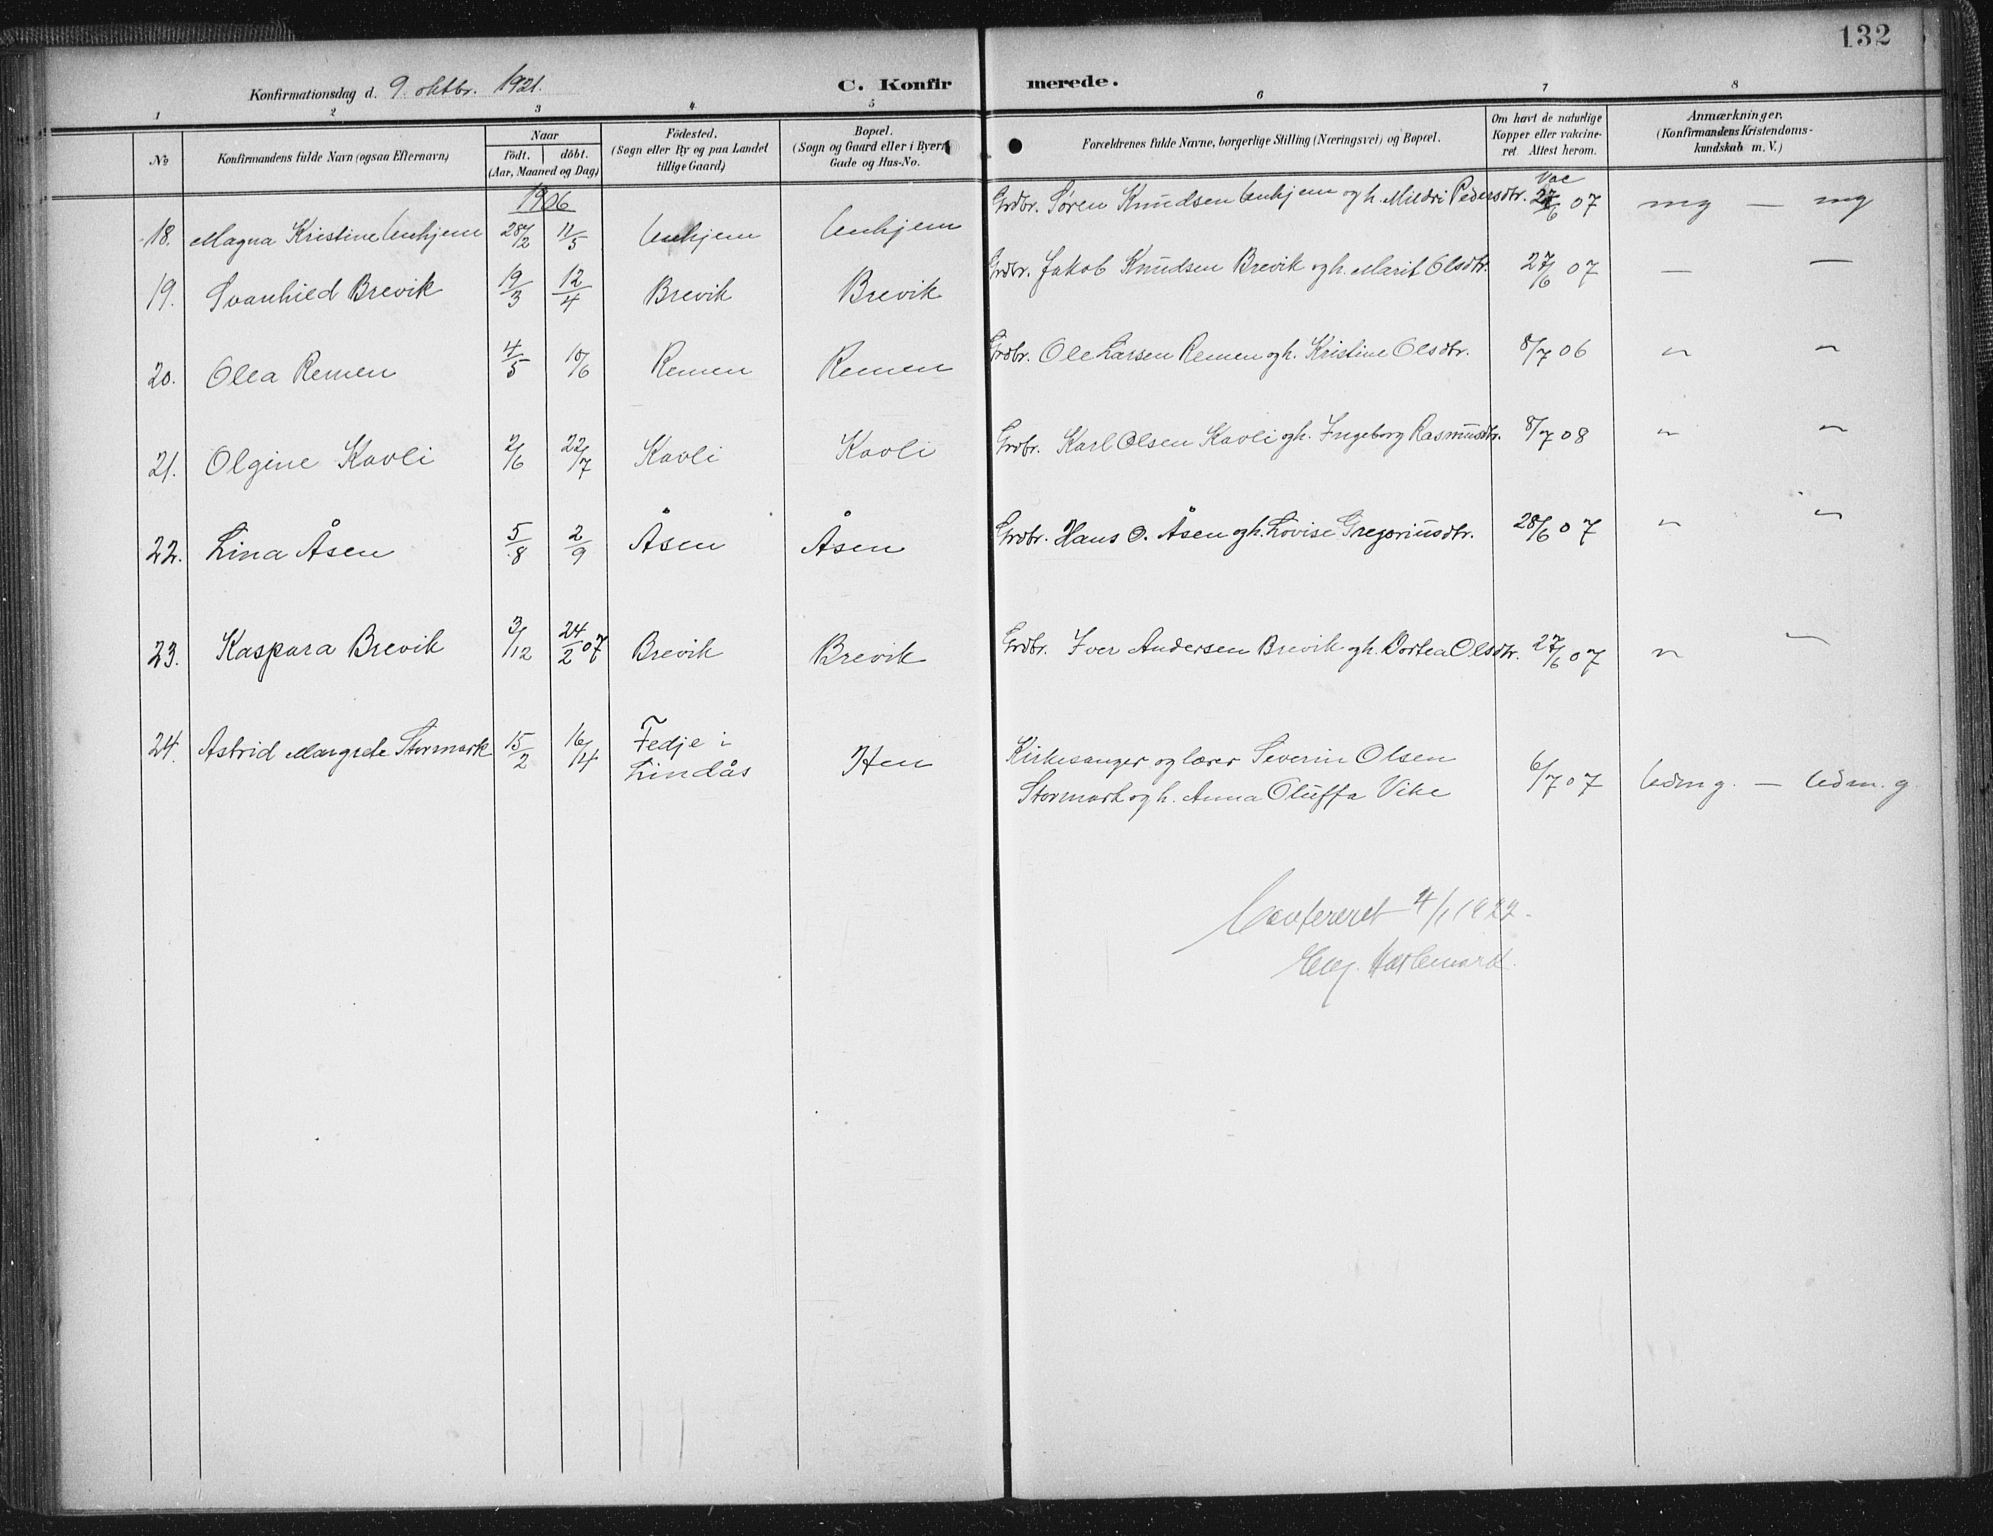 132
Konfirmationsdag d. 9. oktbr. 1921.
C. Konfirmerede.
1 2 3 4 5 6 7 8
No
Konfirmandens fulde Navn (ogsaa Efternavn)
Naar
födt. | döbt.
(Aar, Maaned og Dag)
Födested.
(Sogn eller By og paa Landet
tillige Gaard)
Bopæl.
(Sogn og Gaard eller i Byern
Gade og Hus-No.
Forældrenes fulde Navne, borgerlige Stilling (Næringsvei) og Bopæl.
Om havt de naturlige
Kopper eller vakcine-
ret. Attest herom.
Anmærkninger.
(Konfirmandens Kristendoms-
kundskab m. V.)
1906
Vac
18. Magna Kristine Unhjem 28/2 11/5 Unhjem Unhjem Grdbr. Søren Knudsen Unhjem og h. Mildri Pedersdtr. 27/6 07 mg — mg
19. Svanhild Brevik 19/3 12/4 Brevik Brevik Grdbr. Jakob Knudsen Brevik og h. Marit Olsdtr. 27/6 07 — —
20. Olea Remen 4/5 10/6 Remen Remen Grdbr. Ole Larsen Remen og h. Kristine Olsdtr. 8/7 06 " "
21. Olgine Kavli 2/6 22/7 Kavli Kavli Grdbr. Karl Olsen Kavli og h. Ingeborg Rasmusdtr. 8/7 08 " "
22. Lina Åsen 5/8 2/9 Åsen Åsen Grdbr. Hans O. Åsen og h. Lovise Gregoriusdtr. 28/6 07 " "
23. Kaspara Brevik 3/12 24/2 07 Brevik Brevik Grdbr. Iver Andersen Brevik og h. Dortea Olsdtr. 27/6 07 " "
24. Astrid Margrete Stormark 15/2 16/4 Fedje i
Lindås Hen Kirkesanger og lærer Severin Olsen
Stormark og h. Anna Oluffa Vike 6/7 07 Udm g. — Udm. g
Confereret 4/1 1922.